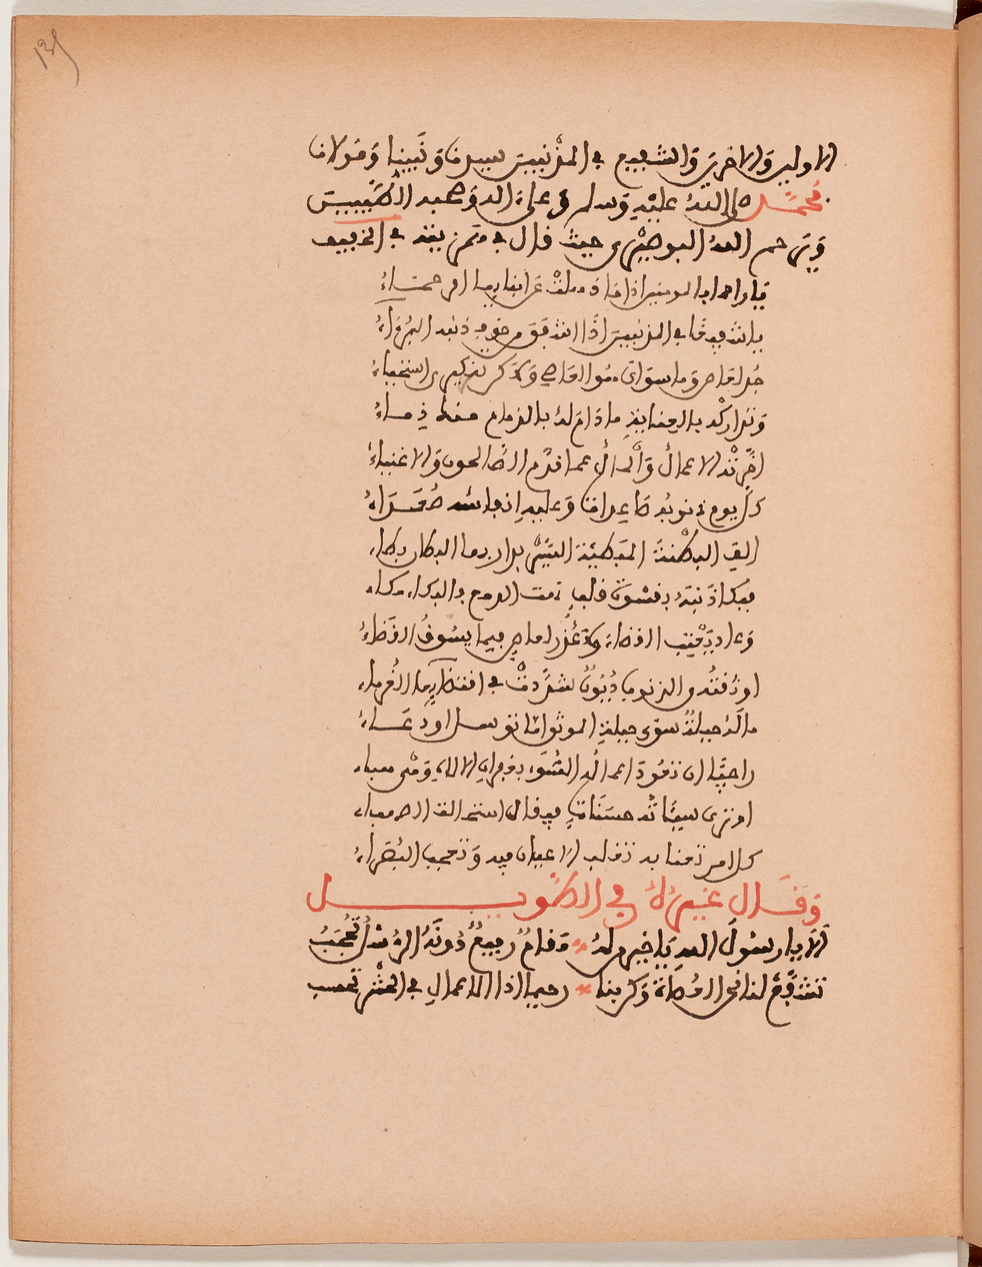 الاولين والاخرين والشفيع في المذنبين سيدنا ونبينا ومولانا
محمد صلى الله عليه وسلم وعلى ءاله وصحبه الطيبين
ويرحم الله البوصيري حيث قال في همزيته في الخفيف
يا رحيما بالمومنين اذا ما ذهلت عن ابنايها الرحماء
يا شفيعا في المذنبين اذا اشفق من خوف ذنبه البرءاء
جد لعاص وما سواي هو العاصي ولكن تنكيري استحياء
وتداركه بالعناية ما دام له بالذمام منك ذماء
اخرته الاعمال والمال عما قدم الصالحون والاغنياء
كل يوم ذنوبه صاعدات وعليها انفاسه صعداء
الف البطنة المبطية السير بدار بها البطان بطاء
فبكى ذنبه بقسوة قلب نهت الدمع فالبكاء مكاء
وغدا يعتب القضاء ولا عذر لعاص فيما يسوق القضاء
اوثقته من الذنوب ديون شددت في اقتضايها الغرماء
ماله حيلة سوى حيلة الموثق اما توسل او دعاء
راجيا ان تعود اعماله السوء بغفران الله وهي هباء
او ترى سيئاته حسنات فيقال استحالت الصهباء
كل امر تعنى به تقلب الاعيان فيه وتعجب البصراء
وقال غيره في الطويل
الا يا رسول الله يا خير من له * مقام رفيع دونه الرسل تحجب
تشفع لنا في الحادثات وكن بنا * رحيما اذا الاعمال في الحشر تحسب